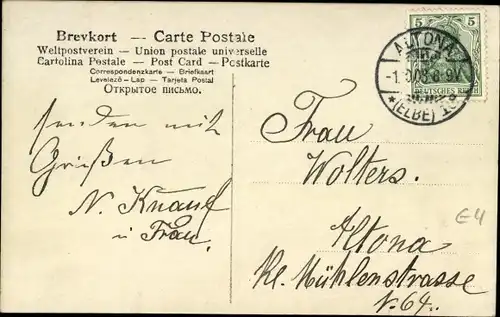 Brevkort — Carte Postale
Weltpostverein — Union postale universelle
Cartolina Postale — Post Card — Postkarte
Correspondenzkarte — Briefkaart
Levelező-Lap — Tarjeta Postal
Открытое письмо.
5 5
ALTONA
(ELBE)
DEUTSCHES REICH
senden mit
Grüßen
N. Knauf
u Frau.
Frau
Wolters.
Altona
Kl. Mühlenstrasse
N. 64.
E4